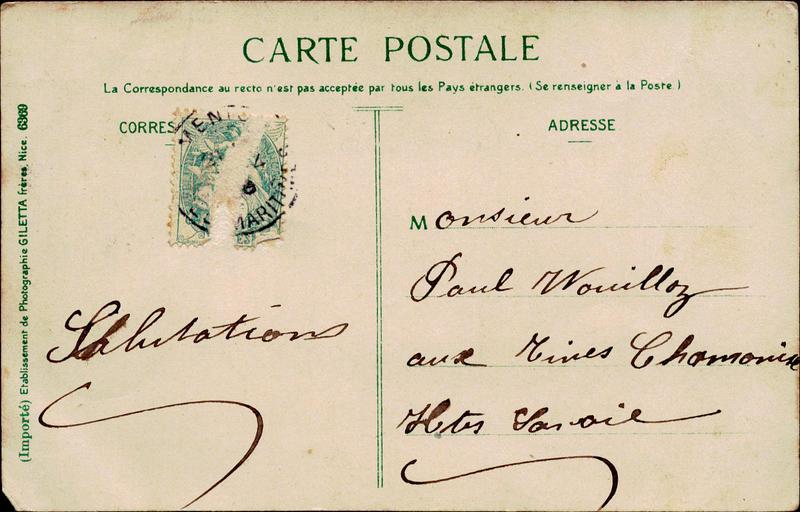 CARTE POSTALE
La Correspondance au recto n'est pas acceptée par tous les Pays étrangers. (Se renseigner à la Poste.)
CORRES
ADRESSE
MENTO
MARITIMES
Monsieur
Paul Wouilloz
aux Tines Chamonix
Htes Savoie
Salutations
(Importé) Etablissement de Photographie GILETTA frères, Nice. 6369